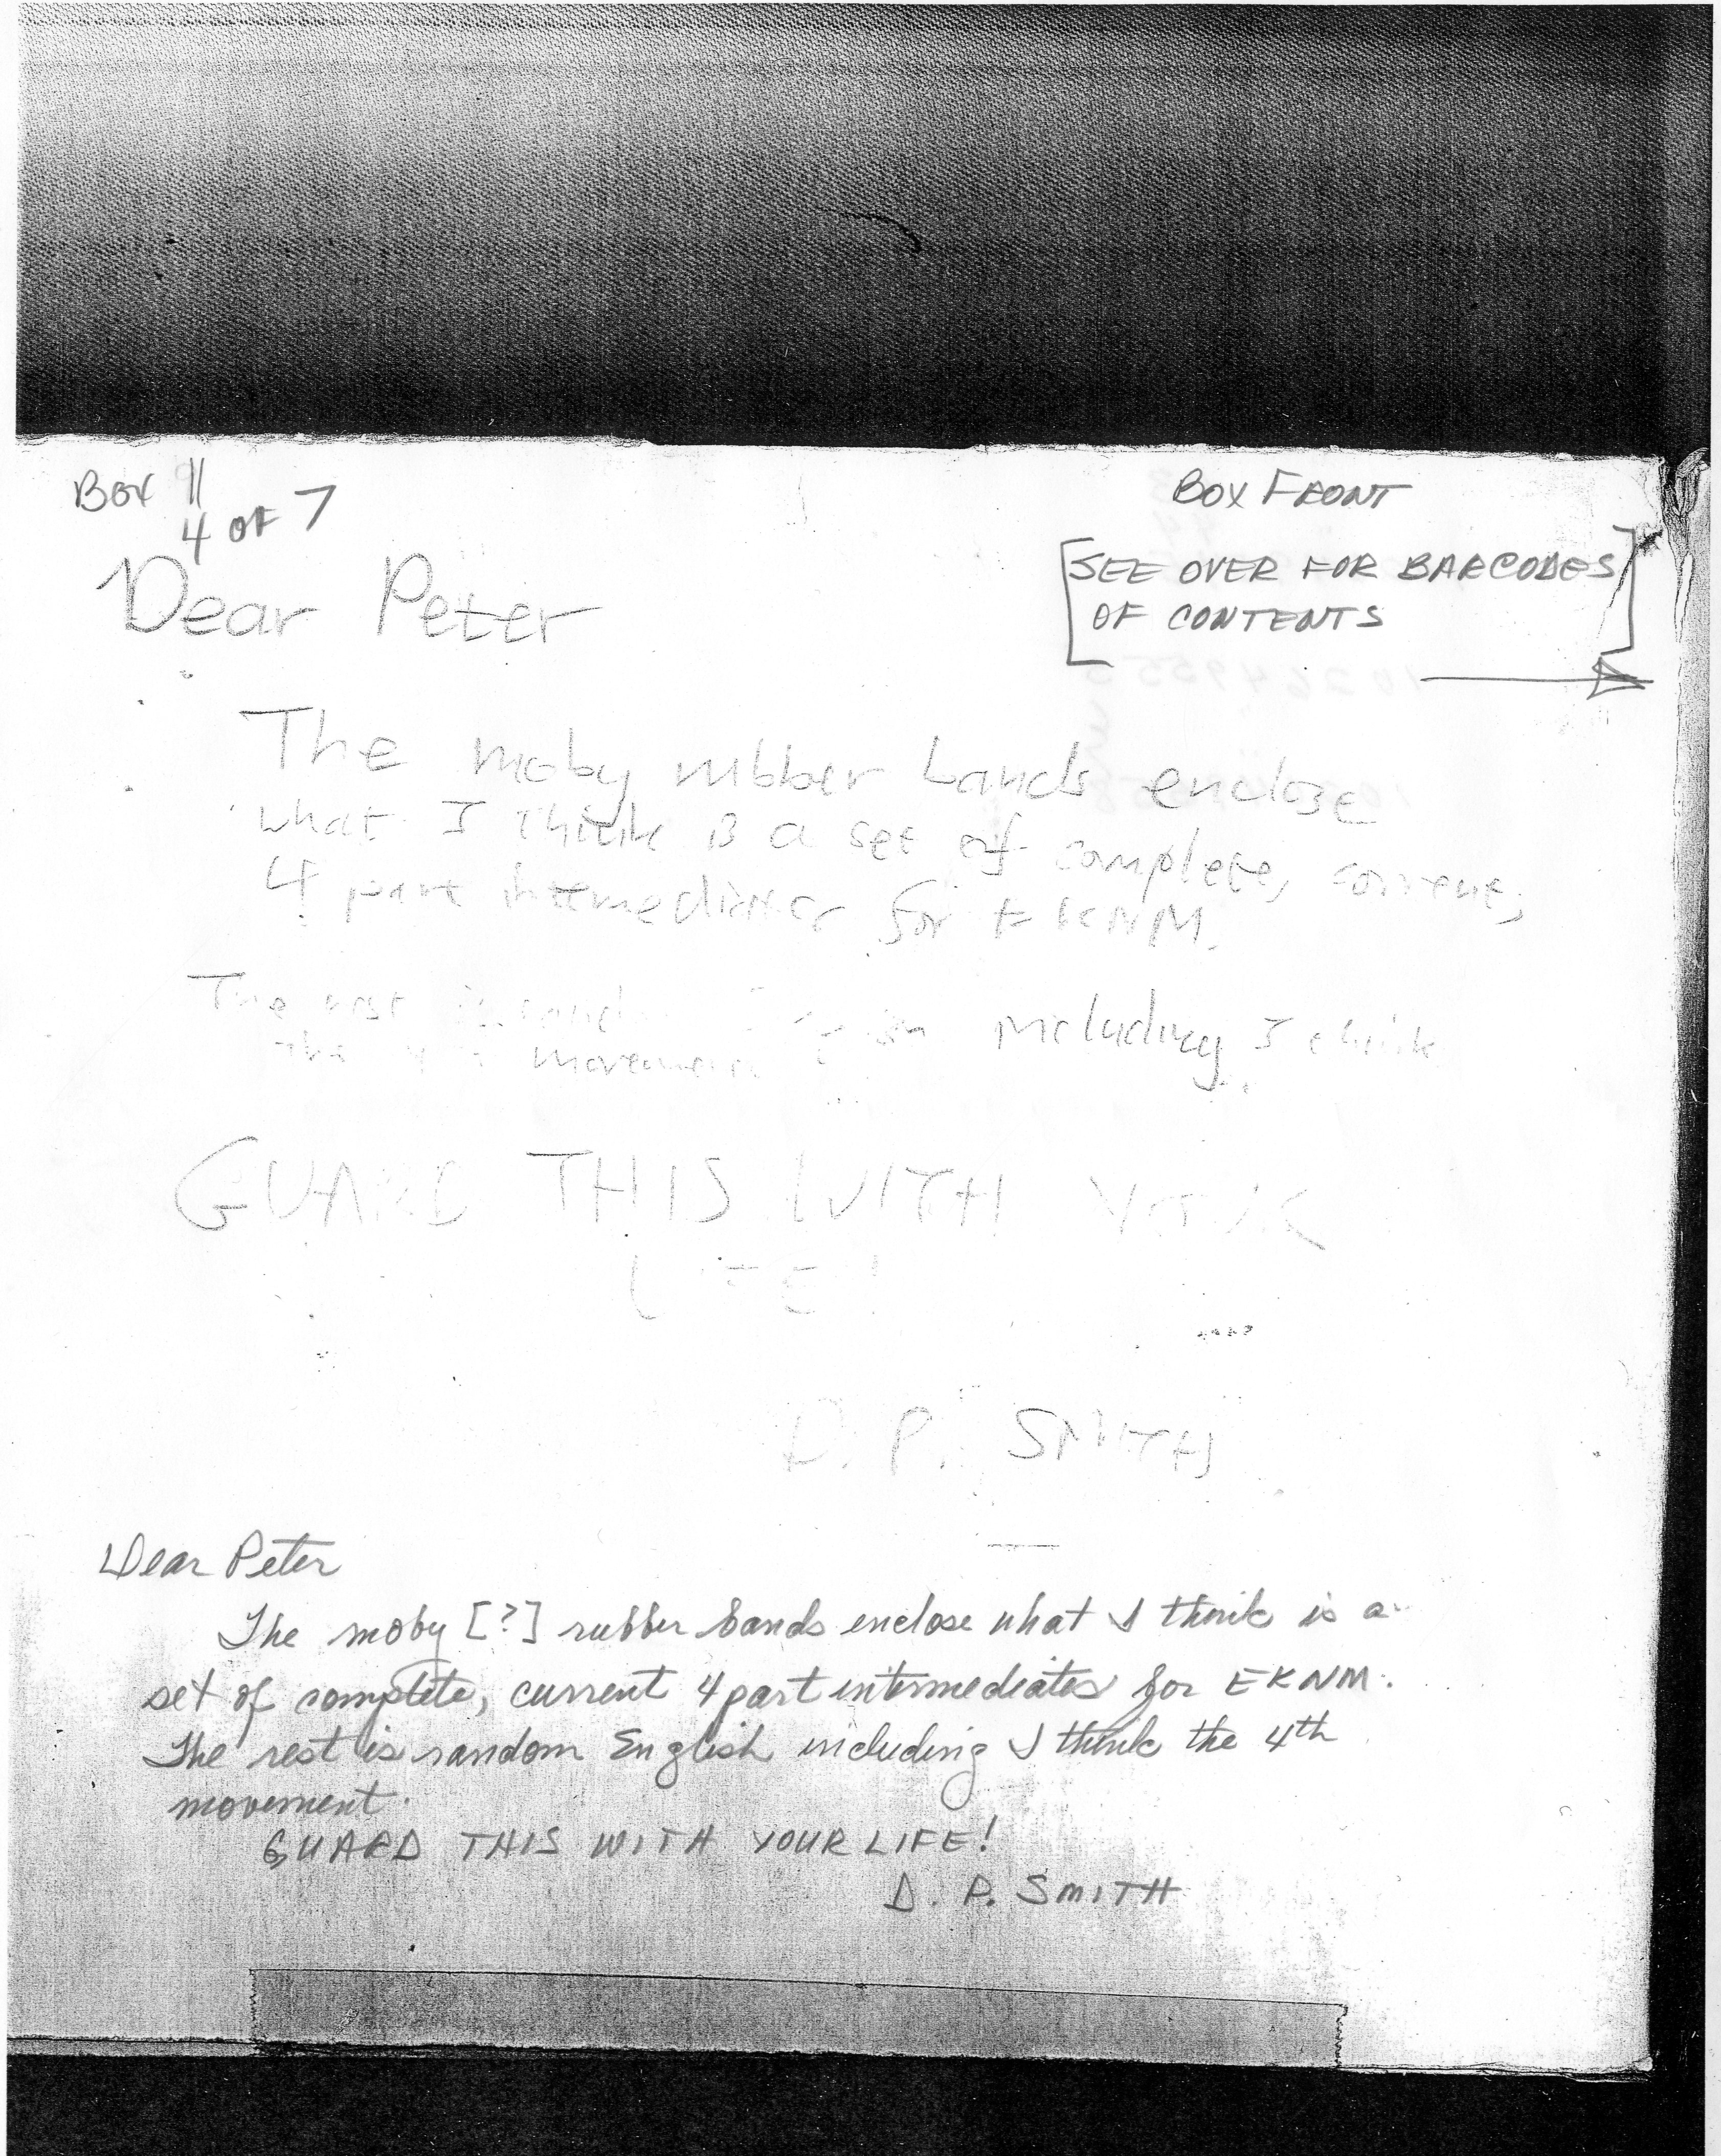 Box 11
4 OF 7
BOX FRONT
[SEE OVER FOR BARCODES
OF CONTENTS]
Dear Peter
The moby rubber bands enclose
what I think is a set of complete, current,
4 part intermediates for EKNM.
The rest including I think
the movement
GUARD THIS WITH YOUR
LIFE!
D. P. SMITH
Dear Peter
The moby [?] rubber bands enclose what I think is a
set of complete, current 4 part intermediates for EKNM.
The rest is random English including I think the 4th
movement.
GUARD THIS WITH YOUR LIFE!
D. P. SMITH